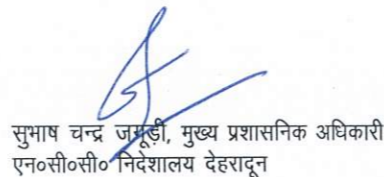 सुभाष चन्द्र जयूड़ी, मुख्य प्रशासनिक अधिकारी
एन०सी०सी० निदेशालय देहरादून